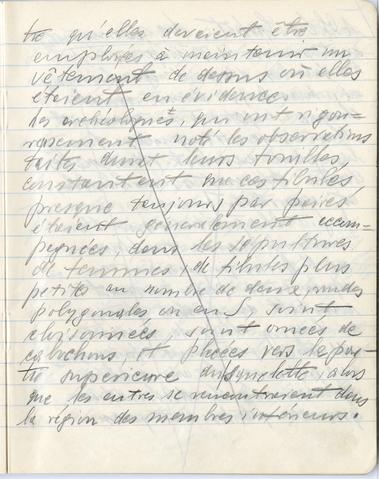 tre qu'elles devaient être
employées à maintenir un
vêtement de dessus où elles
étaient en évidence.
Les archéologues, qui ont rigou-
reusement noté les observations
faites dans leurs fouilles,
constatent que ces fibules,
presque toujours par paires,
étaient généralement accom-
pagnées, dans les sépultures
de femmes, de fibules plus
petites au nombre de deux, rondes
polygonales ou en S, sont
cloisonnées, sont ornées de
cabochons, et placées vers la par-
tie supérieure du squelette, alors
que les autres se rencontraient dans
la région des membres inférieurs.